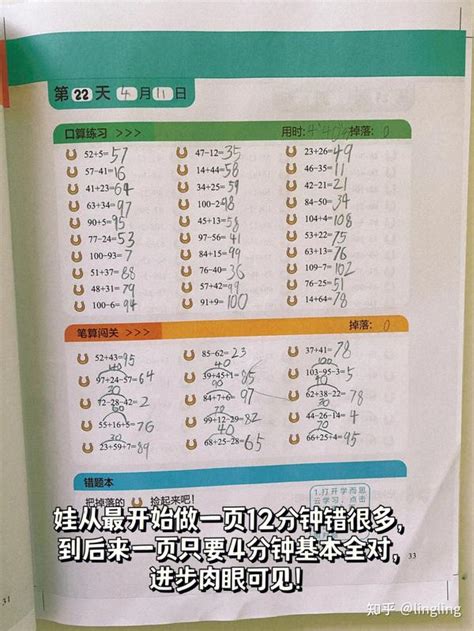 第 22 天 4 月 11 日
口算练习 >>> 用时: 4'40" 掉落: 0
52+5=57 47-12=35 23+26=49
57-41=16 14+44=58 46-35=11
41+23=64 34+25=59 42-21=21
63+34=97 100-2=98 84-50=34
90+5=95 45+13=58 104+4=108
77-24=53 97-56=41 53+22=75
100-93=7 84+15=99 63+13=76
51+37=88 76-40=36 109-7=102
48+31=79 57+42=99 76-25=51
100-6=94 91+9=100 14+64=78
笔算闯关 >>> 掉落: 0
52+43=95 85-62=23 37+41=78
100 40 100
97+24-57=64 39+45+1=85 103-95-3=5
30 90 30
72-28-42=2 84+7+6=97 62+38-22=78
60 70
55+16+5=76 99+12-29=82 44-26-14=4
30 40 70
23+59+7=89 68+25-28=65 66+25+4=95
错题本
把掉落的 捡起来吧!
1.打开学而思
云学习,点击
娃从最开始做一页12分钟错很多,
到后来一页只要4分钟基本全对,
进步肉眼可见!
31
33
知乎 @lingling